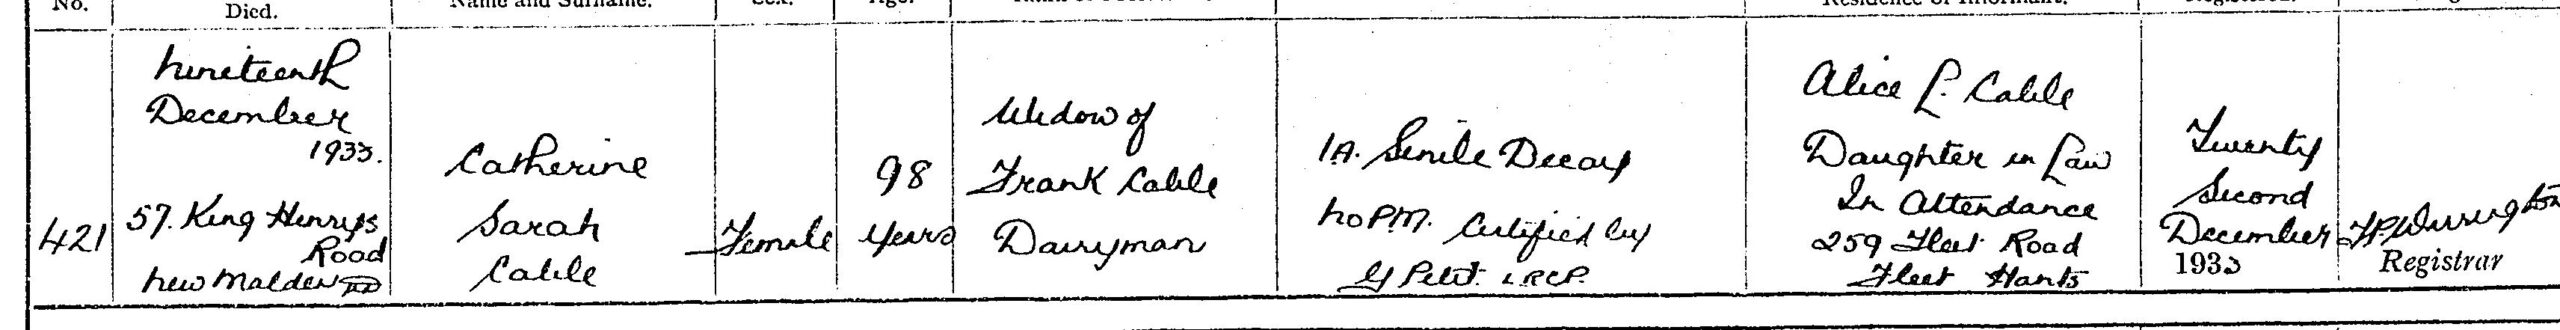 No.
Died.
Name and Surname.
Sex.
Age.
Residence of Informant.
Registered.
421
Nineteenth
December
1933.
57. King Henrys
Road
New Malden UD
Catherine
Sarah
Cable
Female
98
years
Widow of
Frank Cable
Dairyman
1A. Senile Decay
No P.M. Certified by
G Petit L.R.C.P.
Alice L. Cable
Daughter in Law
In Attendance
259 Fleet Road
Fleet Hants
Twenty
Second
December
1933
Registrar